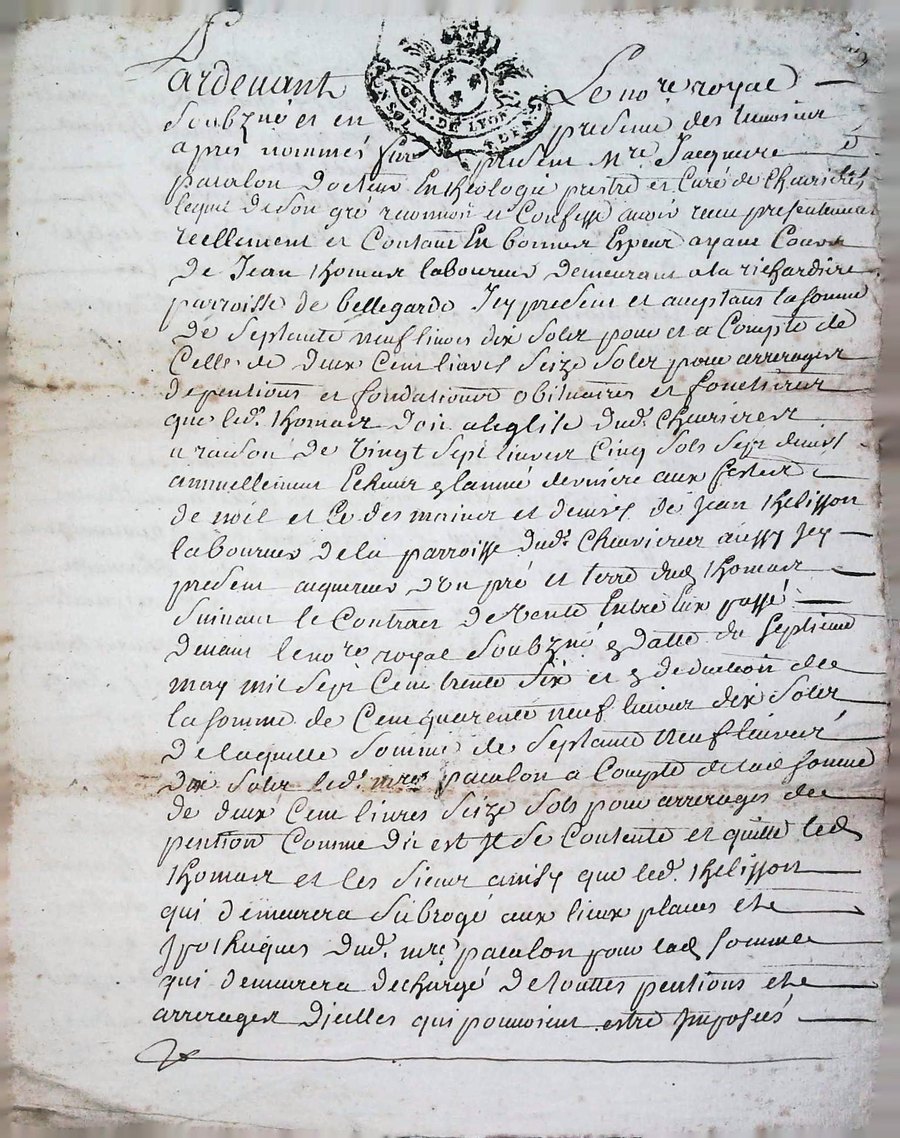 Pardevant Le no.re royal
GEN. DE LYON
Soubzné et en presence des temoins
apres nommés fut present Mre Jacques
pacalon Docteur En theologie prestre et Curé de Chevrieres
lequel de son gré reconnoit et Confesse avoir receu presentement
reellement et Contant En bonnes Especes ayant Cours
de Jean thomas laboureur demeurant a la richardiere
parroisse de bellegarde Jcy present et aceptant la somme
De Septante neuf livres dix solz pour et a Compte de
Celle de deux Cent livres Seize Solz pour arrerages
de pentions et fondations obituaires et foncieres
que led. thomas Doit a leglise dud. Chevrieres
a raison de Vingt Sept livres Cinq sols Sept deniers
annuellement Echeus lannée derniere aux festes
de noel et Ce des mains et deniers de Jean thelisson
laboureur de la parroisse dud. Chevrieres aussy Jcy
present aquereur d'un pré et terre dud thomas
Suivant le Contract de Vente Entre Eux passé
devant le no.re royal Soubzné datte du Septieme
may mil Sept Cent trente Six et deduction de
la somme de Cent quarente neuf livres dix solz
De laquelle Somme de Septante Neuf livres
Dix solz led. mre pacalon a Compte de lad somme
de deux Cent livres Seize Sols pour arrerages de
pention Comme dit est Il Se Contente et quitte led
thomas et les siens ainsy que led. thelisson
qui demeurera Subrogé aux lieux places et
Ipotheques dud. mre pacalon pour lad somme
qui demeurera dechargé de touttes pentions et
arrerages Djcelles qui pouvoient estre Jmposés